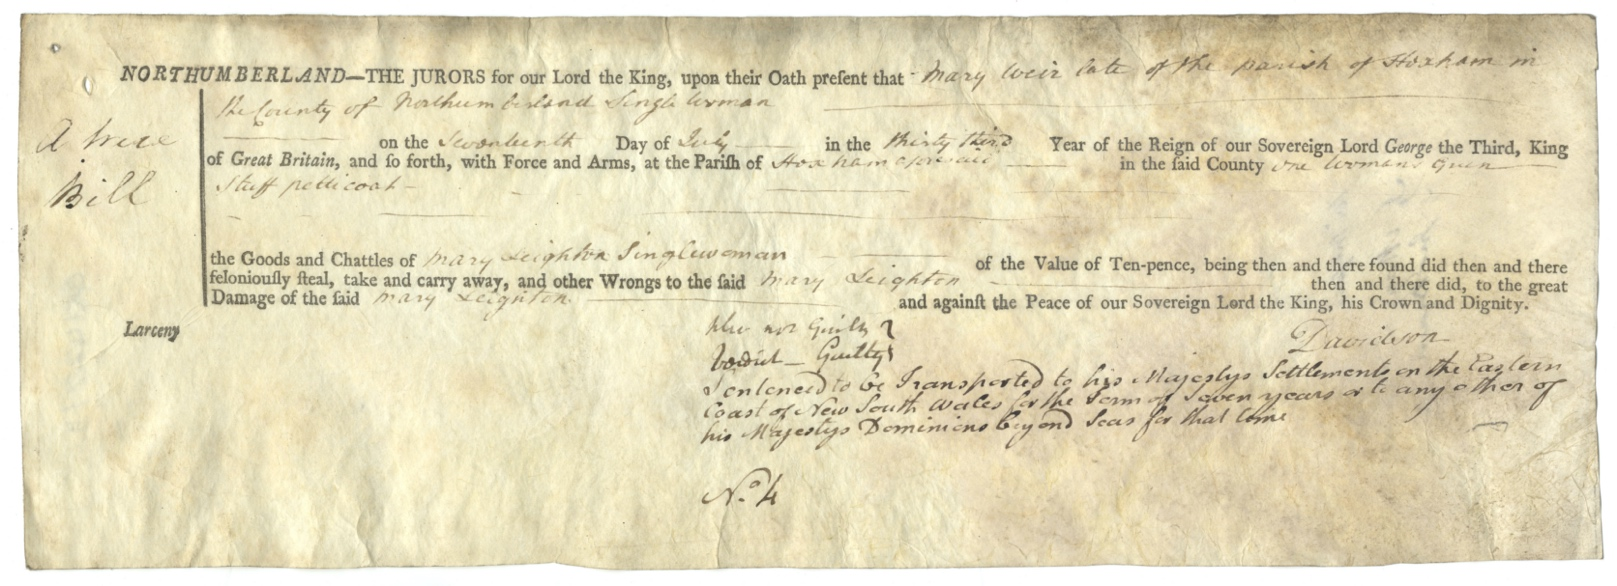 NORTHUMBERLAND—THE JURORS for our Lord the King, upon their Oath preſent that Mary Weir late of the parish of Hexham in
the County of Northumberland Single Woman
on the Seventeenth Day of July in the thirty third Year of the Reign of our Sovereign Lord George the Third, King
of Great Britain, and ſo forth, with Force and Arms, at the Pariſh of Hexham aforesaid in the ſaid County one Womans Green
Stuff petticoat
A true
Bill
the Goods and Chattles of Mary Leighton Singlewoman of the Value of Ten-pence, being then and there found did then and there
feloniouſly ſteal, take and carry away, and other Wrongs to the ſaid Mary Leighton then and there did, to the great
Damage of the ſaid Mary Leighton and againſt the Peace of our Sovereign Lord the King, his Crown and Dignity.
Larceny
Plea not Guilty
Davidson
Verdict — Guilty
Sentenced to be Transported to his Majestys Settlements on the Eastern
Coast of New South Wales for the Term of Seven years or to any other of
his Majestys Dominions beyond Seas for that time
No. 4